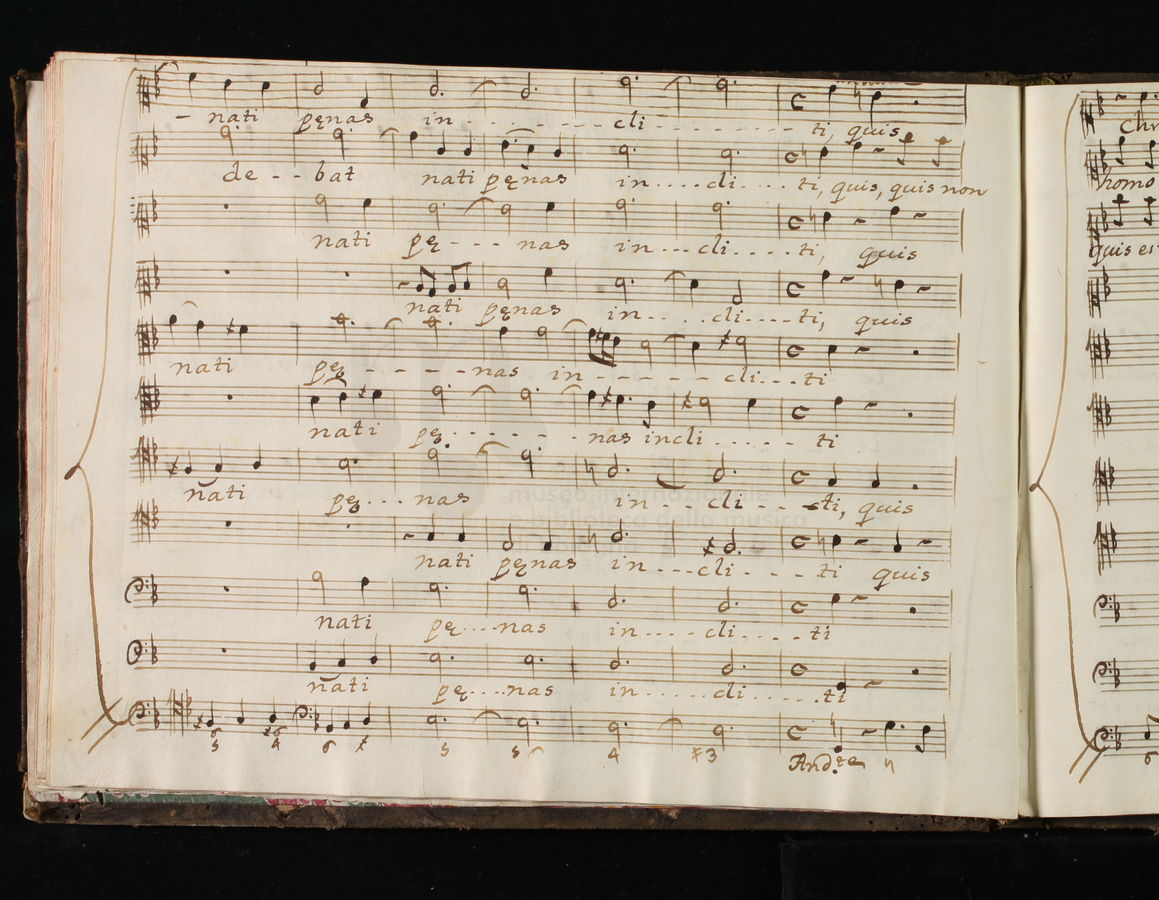 - nati pęnas in - - - - - - cli - - - - - - - - ti, quis
de - - bat nati pęnas in . . . . cli . . . . ti, quis, quis non
nati pę - - - nas in - - - cli . . . . ti, quis
nati pęnas in - - . . cli - - - - ti, quis
nati pę - - - - - nas in - - - - - - cli . . . ti
nati pę - - - - - - nas incli . . . . . ti
nati pę . . . nas in - - - cli - - - ti, quis
nati pęnas in - - - cli - - - ti quis
nati pę . . . nas in . . . . cli . . . . ti
nati pę . . . . nas in . . . . . cli . . . . . ti
5 6 4 6 5 5 6 4 3
And.te
Chr
homo
quis es
museo internazionale
e biblioteca della musica